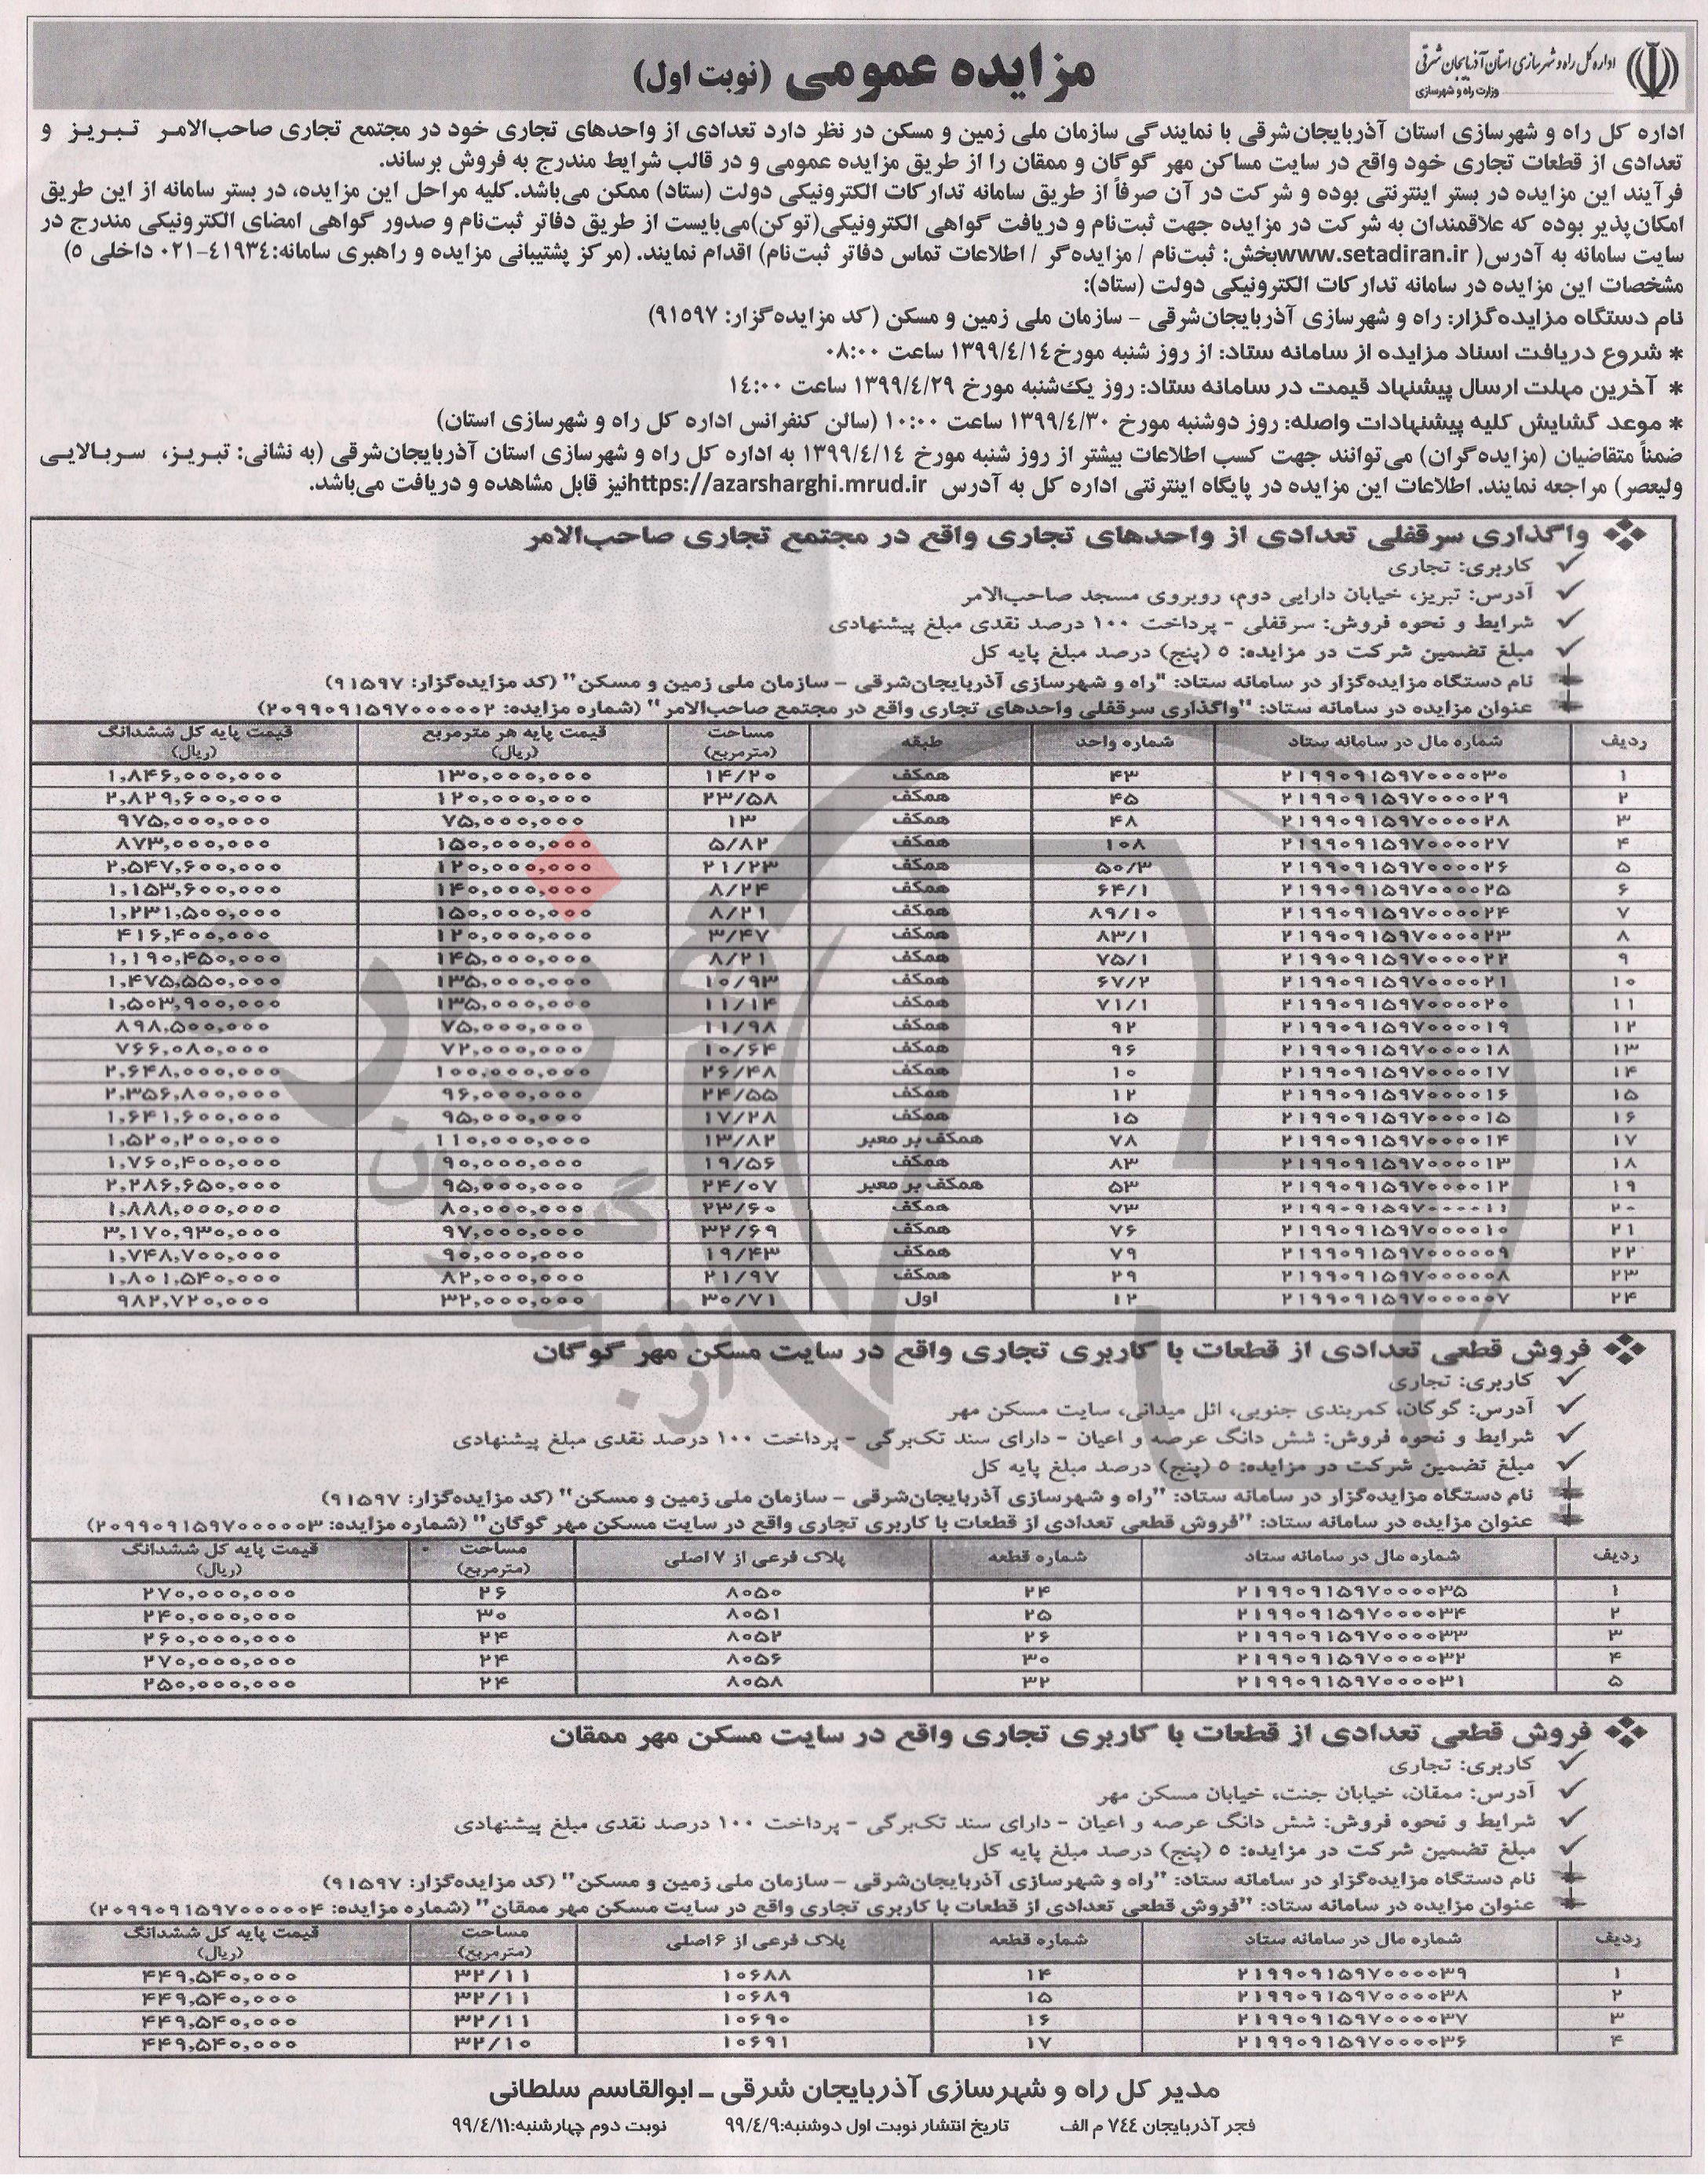 اداره کل راه و شهرسازی استان آذربایجان شرقی
وزارت راه و شهرسازی
مزایده عمومی (نوبت اول)
اداره کل راه و شهرسازی استان آذربایجان‌شرقی با نمایندگی سازمان ملی زمین و مسکن در نظر دارد تعدادی از واحدهای تجاری خود در مجتمع تجاری صاحب‌الامر تبریز و
تعدادی از قطعات تجاری خود واقع در سایت مساکن مهر گوگان و ممقان را از طریق مزایده عمومی و در قالب شرایط مندرج به فروش برساند.
فرآیند این مزایده در بستر اینترنتی بوده و شرکت در آن صرفاً از طریق سامانه تدارکات الکترونیکی دولت (ستاد) ممکن می‌باشد. کلیه مراحل این مزایده، در بستر سامانه از این طریق
امکان‌پذیر بوده که علاقمندان به شرکت در مزایده جهت ثبت‌نام و دریافت گواهی الکترونیکی(توکن)می‌بایست از طریق دفاتر ثبت‌نام و صدور گواهی امضای الکترونیکی مندرج در
سایت سامانه به آدرس( www.setadiran.irبخش: ثبت‌نام / مزایده‌گر / اطلاعات تماس دفاتر ثبت‌نام) اقدام نمایند. (مرکز پشتیبانی مزایده و راهبری سامانه:۴۱۹۳۴-۰۲۱ داخلی ۵)
مشخصات این مزایده در سامانه تدارکات الکترونیکی دولت (ستاد):
نام دستگاه مزایده‌گزار: راه و شهرسازی آذربایجان‌شرقی - سازمان ملی زمین و مسکن (کد مزایده‌گزار: ۹۱۵۹۷)
* شروع دریافت اسناد مزایده از سامانه ستاد: از روز شنبه مورخ۱۳۹۹/۴/۱۴ ساعت ۰۸:۰۰
* آخرین مهلت ارسال پیشنهاد قیمت در سامانه ستاد: روز یک‌شنبه مورخ ۱۳۹۹/۴/۲۹ ساعت ۱۴:۰۰
* موعد گشایش کلیه پیشنهادات واصله: روز دوشنبه مورخ ۱۳۹۹/۴/۳۰ ساعت ۱۰:۰۰ (سالن کنفرانس اداره کل راه و شهرسازی استان)
ضمناً متقاضیان (مزایده‌گران) می‌توانند جهت کسب اطلاعات بیشتر از روز شنبه مورخ ۱۳۹۹/۴/۱۴ به اداره کل راه و شهرسازی استان آذربایجان‌شرقی (به نشانی: تبریز، سربالایی
ولیعصر) مراجعه نمایند. اطلاعات این مزایده در پایگاه اینترنتی اداره کل به آدرس https://azarsharghi.mrud.irنیز قابل مشاهده و دریافت می‌باشد.
❖ واگذاری سرقفلی تعدادی از واحدهای تجاری واقع در مجتمع تجاری صاحب‌الامر
✓ کاربری: تجاری
✓ آدرس: تبریز، خیابان دارایی دوم، روبروی مسجد صاحب‌الامر
✓ شرایط و نحوه فروش: سرقفلی - پرداخت ۱۰۰ درصد نقدی مبلغ پیشنهادی
✓ مبلغ تضمین شرکت در مزایده: ۵ (پنج) درصد مبلغ پایه کل
نام دستگاه مزایده‌گزار در سامانه ستاد: "راه و شهرسازی آذربایجان‌شرقی - سازمان ملی زمین و مسکن" (کد مزایده‌گزار: ۹۱۵۹۷)
عنوان مزایده در سامانه ستاد: "واگذاری سرقفلی واحدهای تجاری واقع در مجتمع صاحب‌الامر" (شماره مزایده: ۲۰۹۹۰۹۱۵۹۷۰۰۰۰۰۲)
ردیف شماره مال در سامانه ستاد شماره واحد طبقه مساحت (مترمربع) قیمت پایه هر مترمربع (ریال) قیمت پایه کل ششدانگ (ریال)
۱ ۲۱۹۹۰۹۱۵۹۷۰۰۰۰۳۰ ۴۳ همکف ۱۴/۲۰ ۱۳۰,۰۰۰,۰۰۰ ۱,۸۴۶,۰۰۰,۰۰۰
۲ ۲۱۹۹۰۹۱۵۹۷۰۰۰۰۲۹ ۴۵ همکف ۲۳/۵۸ ۱۲۰,۰۰۰,۰۰۰ ۲,۸۲۹,۶۰۰,۰۰۰
۳ ۲۱۹۹۰۹۱۵۹۷۰۰۰۰۲۸ ۴۸ همکف ۱۳ ۷۵,۰۰۰,۰۰۰ ۹۷۵,۰۰۰,۰۰۰
۴ ۲۱۹۹۰۹۱۵۹۷۰۰۰۰۲۷ ۱۰۸ همکف ۵/۸۲ ۱۵۰,۰۰۰,۰۰۰ ۸۷۳,۰۰۰,۰۰۰
۵ ۲۱۹۹۰۹۱۵۹۷۰۰۰۰۲۶ ۵۰/۳ همکف ۲۱/۲۳ ۱۲۰,۰۰۰,۰۰۰ ۲,۵۴۷,۶۰۰,۰۰۰
۶ ۲۱۹۹۰۹۱۵۹۷۰۰۰۰۲۵ ۶۴/۱ همکف ۸/۲۴ ۱۴۰,۰۰۰,۰۰۰ ۱,۱۵۳,۶۰۰,۰۰۰
۷ ۲۱۹۹۰۹۱۵۹۷۰۰۰۰۲۴ ۸۹/۱۰ همکف ۸/۲۱ ۱۵۰,۰۰۰,۰۰۰ ۱,۲۳۱,۵۰۰,۰۰۰
۸ ۲۱۹۹۰۹۱۵۹۷۰۰۰۰۲۳ ۸۳/۱ همکف ۳/۴۷ ۱۲۰,۰۰۰,۰۰۰ ۴۱۶,۴۰۰,۰۰۰
۹ ۲۱۹۹۰۹۱۵۹۷۰۰۰۰۲۲ ۷۵/۱ همکف ۸/۲۱ ۱۴۵,۰۰۰,۰۰۰ ۱,۱۹۰,۴۵۰,۰۰۰
۱۰ ۲۱۹۹۰۹۱۵۹۷۰۰۰۰۲۱ ۶۷/۲ همکف ۱۰/۹۳ ۱۳۵,۰۰۰,۰۰۰ ۱,۴۷۵,۵۵۰,۰۰۰
۱۱ ۲۱۹۹۰۹۱۵۹۷۰۰۰۰۲۰ ۷۱/۱ همکف ۱۱/۱۴ ۱۳۵,۰۰۰,۰۰۰ ۱,۵۰۳,۹۰۰,۰۰۰
۱۲ ۲۱۹۹۰۹۱۵۹۷۰۰۰۰۱۹ ۹۲ همکف ۱۱/۹۸ ۷۵,۰۰۰,۰۰۰ ۸۹۸,۵۰۰,۰۰۰
۱۳ ۲۱۹۹۰۹۱۵۹۷۰۰۰۰۱۸ ۹۶ همکف ۱۰/۶۴ ۷۲,۰۰۰,۰۰۰ ۷۶۶,۰۸۰,۰۰۰
۱۴ ۲۱۹۹۰۹۱۵۹۷۰۰۰۰۱۷ ۱۰ همکف ۲۶/۴۸ ۱۰۰,۰۰۰,۰۰۰ ۲,۶۴۸,۰۰۰,۰۰۰
۱۵ ۲۱۹۹۰۹۱۵۹۷۰۰۰۰۱۶ ۱۲ همکف ۲۴/۵۵ ۹۶,۰۰۰,۰۰۰ ۲,۳۵۶,۸۰۰,۰۰۰
۱۶ ۲۱۹۹۰۹۱۵۹۷۰۰۰۰۱۵ ۱۵ همکف ۱۷/۲۸ ۹۵,۰۰۰,۰۰۰ ۱,۶۴۱,۶۰۰,۰۰۰
۱۷ ۲۱۹۹۰۹۱۵۹۷۰۰۰۰۱۴ ۷۸ همکف بر معبر ۱۳/۸۲ ۱۱۰,۰۰۰,۰۰۰ ۱,۵۲۰,۲۰۰,۰۰۰
۱۸ ۲۱۹۹۰۹۱۵۹۷۰۰۰۰۱۳ ۸۳ همکف ۱۹/۵۶ ۹۰,۰۰۰,۰۰۰ ۱,۷۶۰,۴۰۰,۰۰۰
۱۹ ۲۱۹۹۰۹۱۵۹۷۰۰۰۰۱۲ ۵۳ همکف بر معبر ۲۴/۰۷ ۹۵,۰۰۰,۰۰۰ ۲,۲۸۶,۶۵۰,۰۰۰
۲۰ ۲۱۹۹۰۹۱۵۹۷۰۰۰۰۱۱ ۷۳ همکف ۲۳/۶۰ ۸۰,۰۰۰,۰۰۰ ۱,۸۸۸,۰۰۰,۰۰۰
۲۱ ۲۱۹۹۰۹۱۵۹۷۰۰۰۰۱۰ ۷۶ همکف ۳۲/۶۹ ۹۷,۰۰۰,۰۰۰ ۳,۱۷۰,۹۳۰,۰۰۰
۲۲ ۲۱۹۹۰۹۱۵۹۷۰۰۰۰۰۹ ۷۹ همکف ۱۹/۴۳ ۹۰,۰۰۰,۰۰۰ ۱,۷۴۸,۷۰۰,۰۰۰
۲۳ ۲۱۹۹۰۹۱۵۹۷۰۰۰۰۰۸ ۲۹ همکف ۲۱/۹۷ ۸۲,۰۰۰,۰۰۰ ۱,۸۰۱,۵۴۰,۰۰۰
۲۴ ۲۱۹۹۰۹۱۵۹۷۰۰۰۰۰۷ ۱۲ اول ۳۰/۷۱ ۳۲,۰۰۰,۰۰۰ ۹۸۲,۷۲۰,۰۰۰
❖ فروش قطعی تعدادی از قطعات با کاربری تجاری واقع در سایت مسکن مهر گوگان
✓ کاربری: تجاری
✓ آدرس: گوگان، کمربندی جنوبی، ائل میدانی، سایت مسکن مهر
✓ شرایط و نحوه فروش: شش دانگ عرصه و اعیان - دارای سند تک‌برگی - پرداخت ۱۰۰ درصد نقدی مبلغ پیشنهادی
✓ مبلغ تضمین شرکت در مزایده: ۵ (پنج) درصد مبلغ پایه کل
نام دستگاه مزایده‌گزار در سامانه ستاد: "راه و شهرسازی آذربایجان‌شرقی - سازمان ملی زمین و مسکن" (کد مزایده‌گزار: ۹۱۵۹۷)
عنوان مزایده در سامانه ستاد: "فروش قطعی تعدادی از قطعات با کاربری تجاری واقع در سایت مسکن مهر گوگان" (شماره مزایده: ۲۰۹۹۰۹۱۵۹۷۰۰۰۰۰۳)
ردیف شماره مال در سامانه ستاد شماره قطعه پلاک فرعی از ۷ اصلی مساحت (مترمربع) قیمت پایه کل ششدانگ (ریال)
۱ ۲۱۹۹۰۹۱۵۹۷۰۰۰۰۳۵ ۲۴ ۸۰۵۰ ۲۶ ۲۷۰,۰۰۰,۰۰۰
۲ ۲۱۹۹۰۹۱۵۹۷۰۰۰۰۳۴ ۲۵ ۸۰۵۱ ۳۰ ۲۴۰,۰۰۰,۰۰۰
۳ ۲۱۹۹۰۹۱۵۹۷۰۰۰۰۳۳ ۲۶ ۸۰۵۲ ۲۴ ۲۶۰,۰۰۰,۰۰۰
۴ ۲۱۹۹۰۹۱۵۹۷۰۰۰۰۳۲ ۳۰ ۸۰۵۶ ۲۴ ۲۷۰,۰۰۰,۰۰۰
۵ ۲۱۹۹۰۹۱۵۹۷۰۰۰۰۳۱ ۳۲ ۸۰۵۸ ۲۴ ۲۵۰,۰۰۰,۰۰۰
❖ فروش قطعی تعدادی از قطعات با کاربری تجاری واقع در سایت مسکن مهر ممقان
✓ کاربری: تجاری
✓ آدرس: ممقان، خیابان جنت، خیابان مسکن مهر
✓ شرایط و نحوه فروش: شش دانگ عرصه و اعیان - دارای سند تک‌برگی - پرداخت ۱۰۰ درصد نقدی مبلغ پیشنهادی
✓ مبلغ تضمین شرکت در مزایده: ۵ (پنج) درصد مبلغ پایه کل
نام دستگاه مزایده‌گزار در سامانه ستاد: "راه و شهرسازی آذربایجان‌شرقی - سازمان ملی زمین و مسکن" (کد مزایده‌گزار: ۹۱۵۹۷)
عنوان مزایده در سامانه ستاد: "فروش قطعی تعدادی از قطعات با کاربری تجاری واقع در سایت مسکن مهر ممقان" (شماره مزایده: ۲۰۹۹۰۹۱۵۹۷۰۰۰۰۰۴)
ردیف شماره مال در سامانه ستاد شماره قطعه پلاک فرعی از ۶ اصلی مساحت (مترمربع) قیمت پایه کل ششدانگ (ریال)
۱ ۲۱۹۹۰۹۱۵۹۷۰۰۰۰۳۹ ۱۴ ۱۰۶۸۸ ۳۲/۱۱ ۴۴۹,۵۴۰,۰۰۰
۲ ۲۱۹۹۰۹۱۵۹۷۰۰۰۰۳۸ ۱۵ ۱۰۶۸۹ ۳۲/۱۱ ۴۴۹,۵۴۰,۰۰۰
۳ ۲۱۹۹۰۹۱۵۹۷۰۰۰۰۳۷ ۱۶ ۱۰۶۹۰ ۳۲/۱۱ ۴۴۹,۵۴۰,۰۰۰
۴ ۲۱۹۹۰۹۱۵۹۷۰۰۰۰۳۶ ۱۷ ۱۰۶۹۱ ۳۲/۱۰ ۴۴۹,۵۴۰,۰۰۰
مدیر کل راه و شهرسازی آذربایجان شرقی ـ ابوالقاسم سلطانی
فجر آذربایجان ۷۴۴ م الف تاریخ انتشار نوبت اول دوشنبه:۹۹/۴/۹ نوبت دوم چهارشنبه:۹۹/۴/۱۱